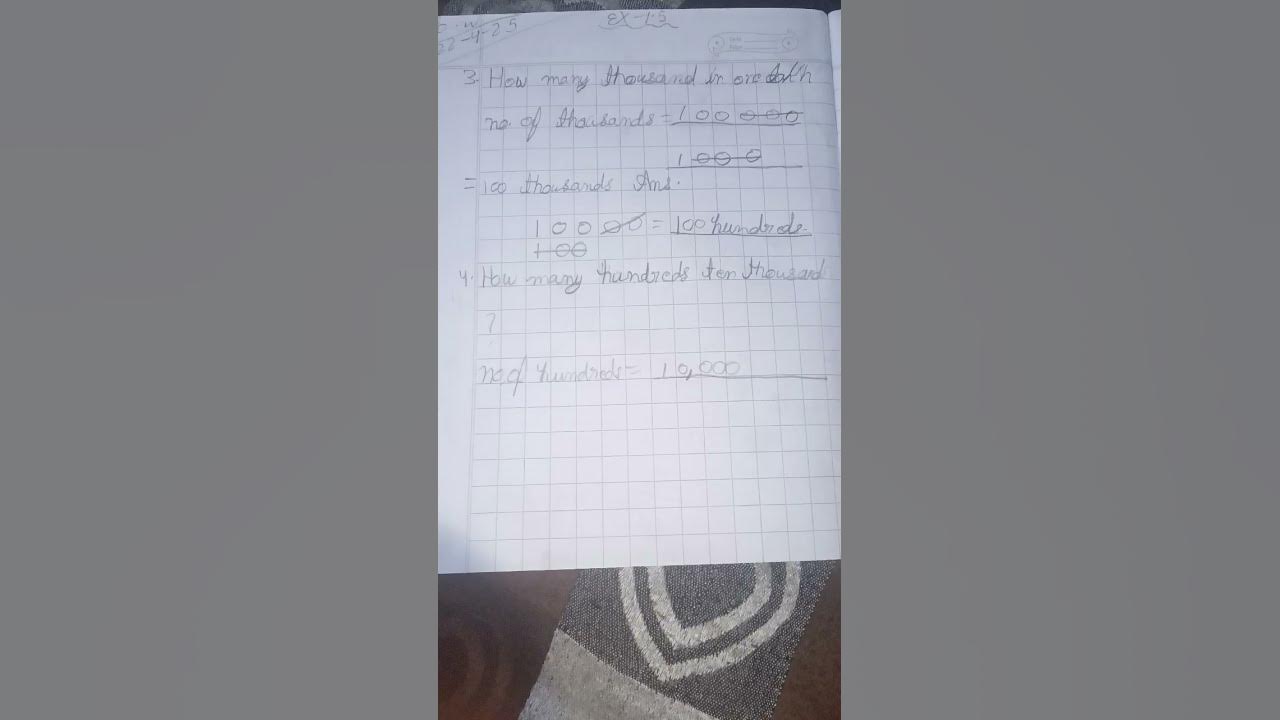 Ex-1.5
22-4-25
3. How many thousand in one lakh
no. of thousands = 100000
1000
= 100 thousands Ans.
10000 = 100 hundreds.
100
4. How many hundreds ten thousand
?
no. of hundreds = 10,000